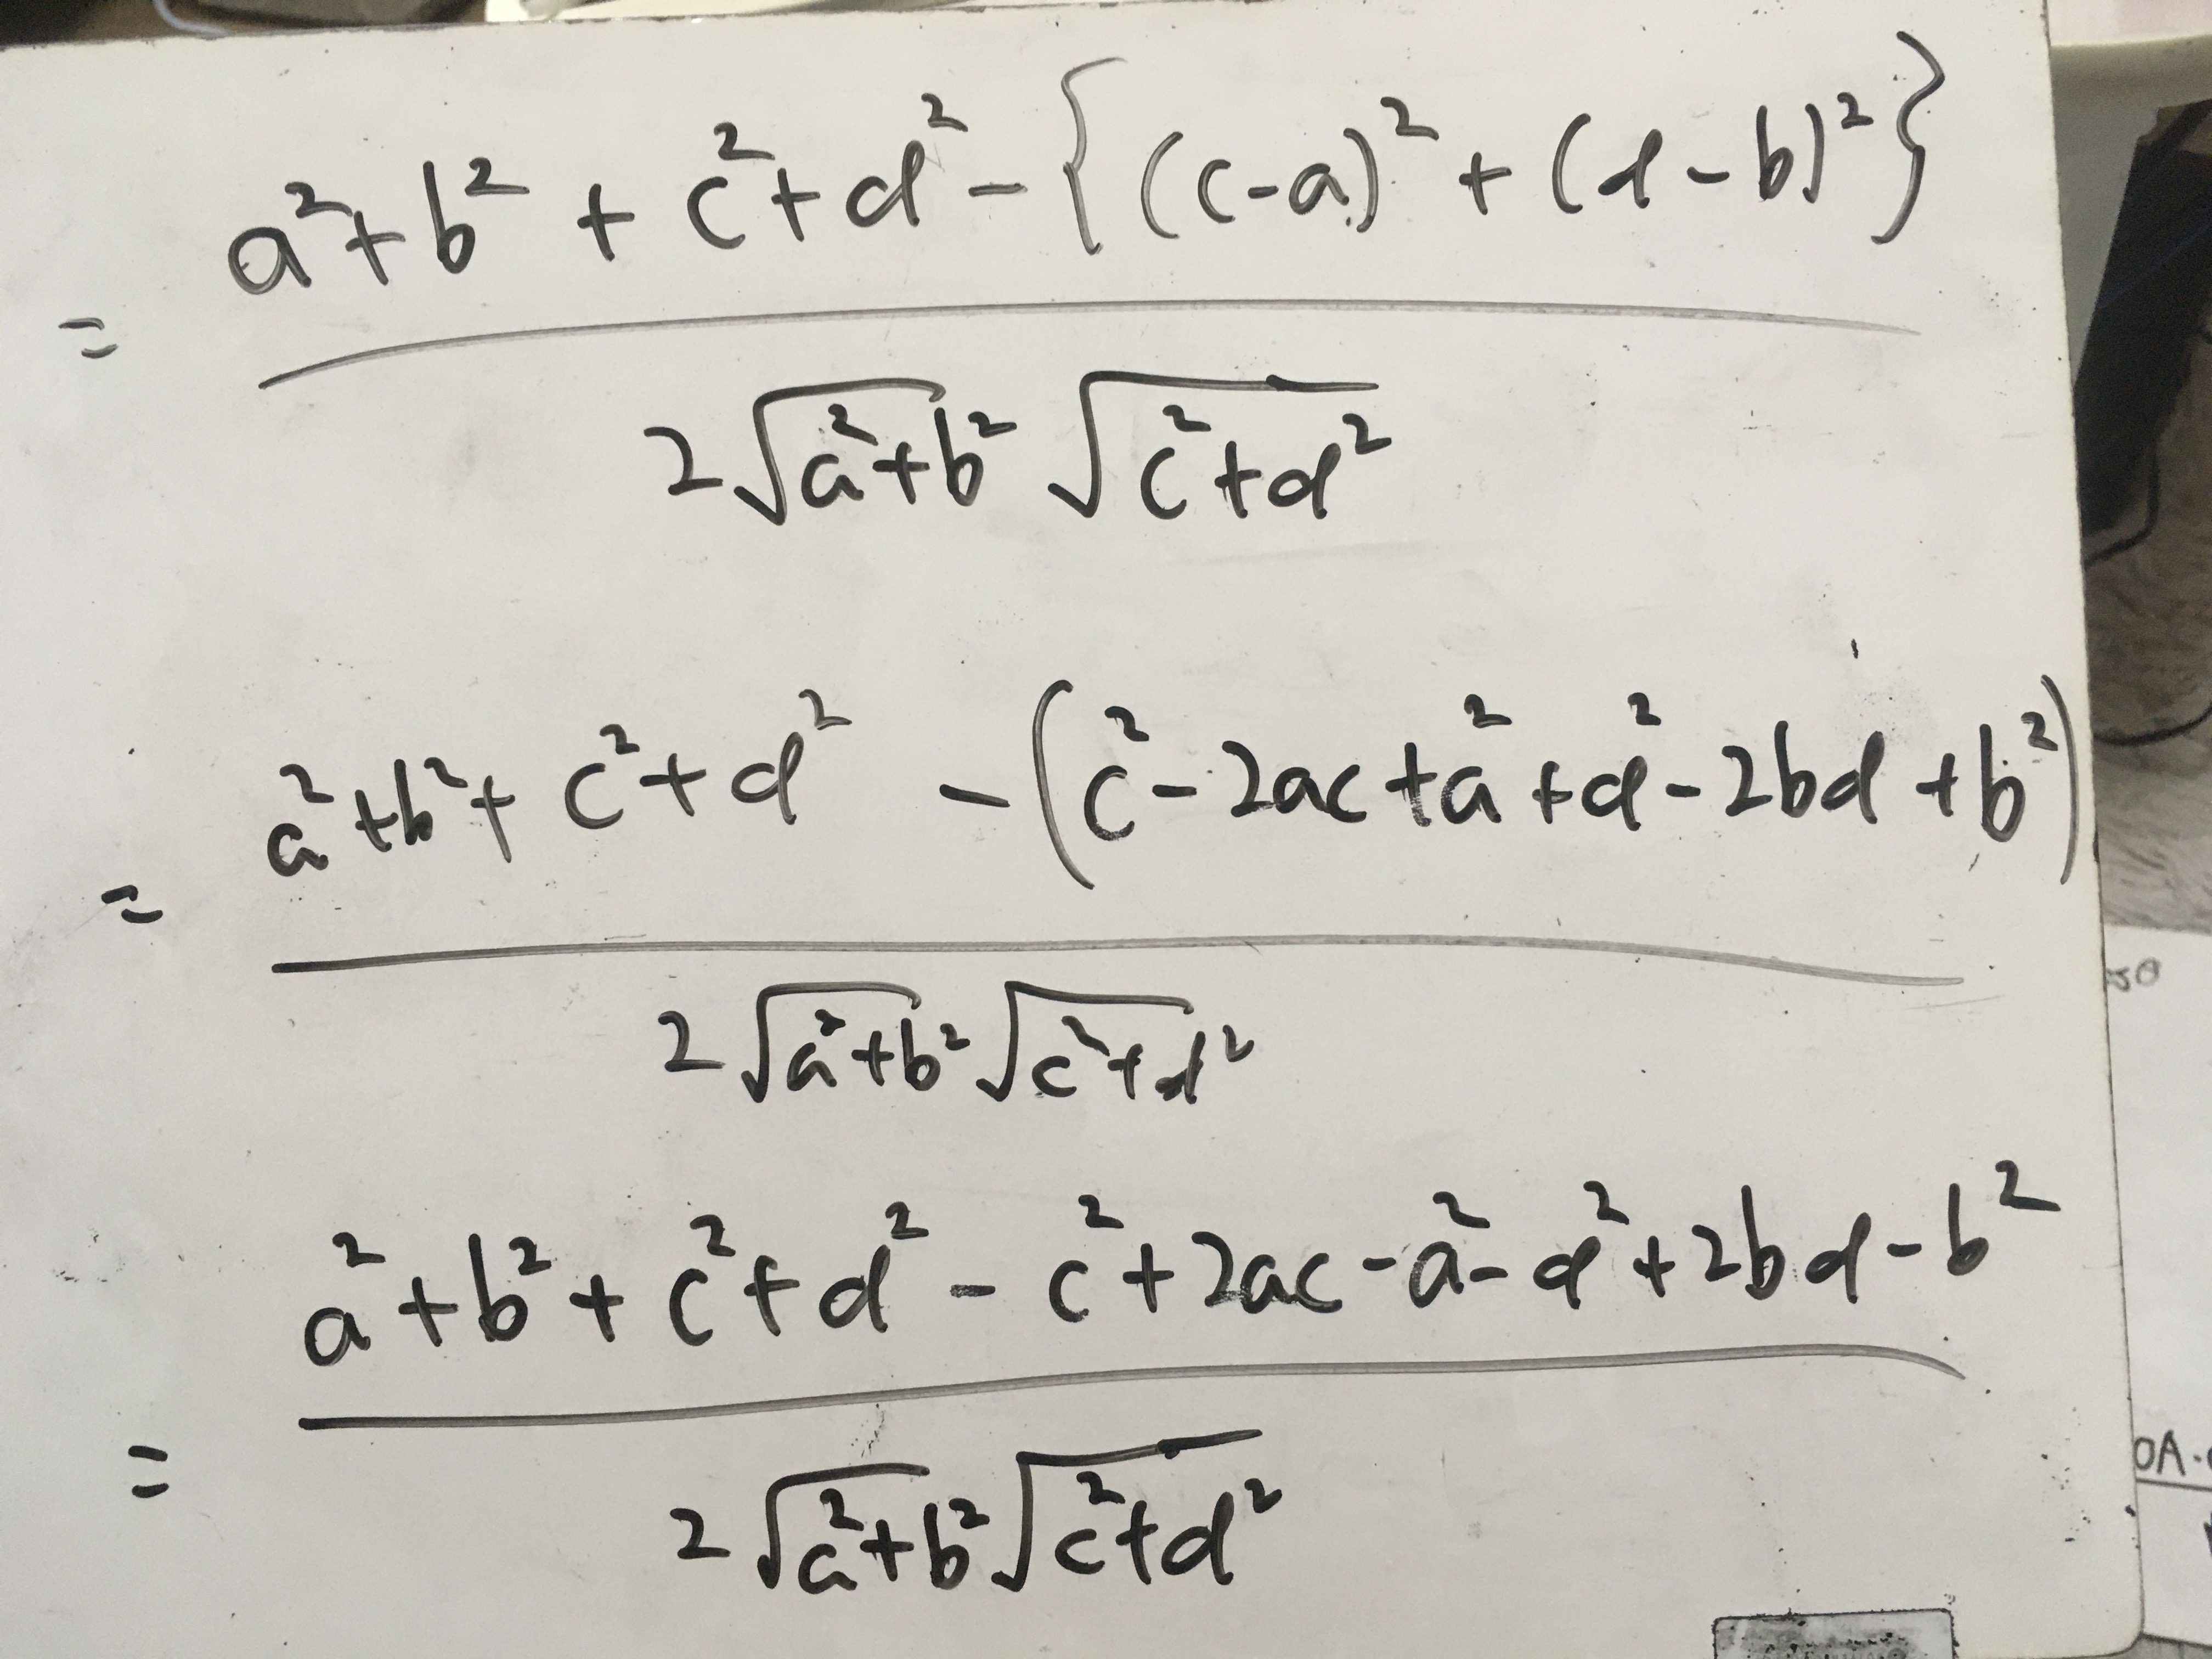 = (a²+b² + c²+d² - {(c-a)² + (d-b)²}) / (2√(a²+b²) √(c²+d²))
= (a²+b²+c²+d² - (c²-2ac+a²+d²-2bd+b²)) / (2√(a²+b²) √(c²+d²))
= (a²+b²+c²+d²-c²+2ac-a²-d²+2bd-b²) / (2√(a²+b²) √(c²+d²))
OA.